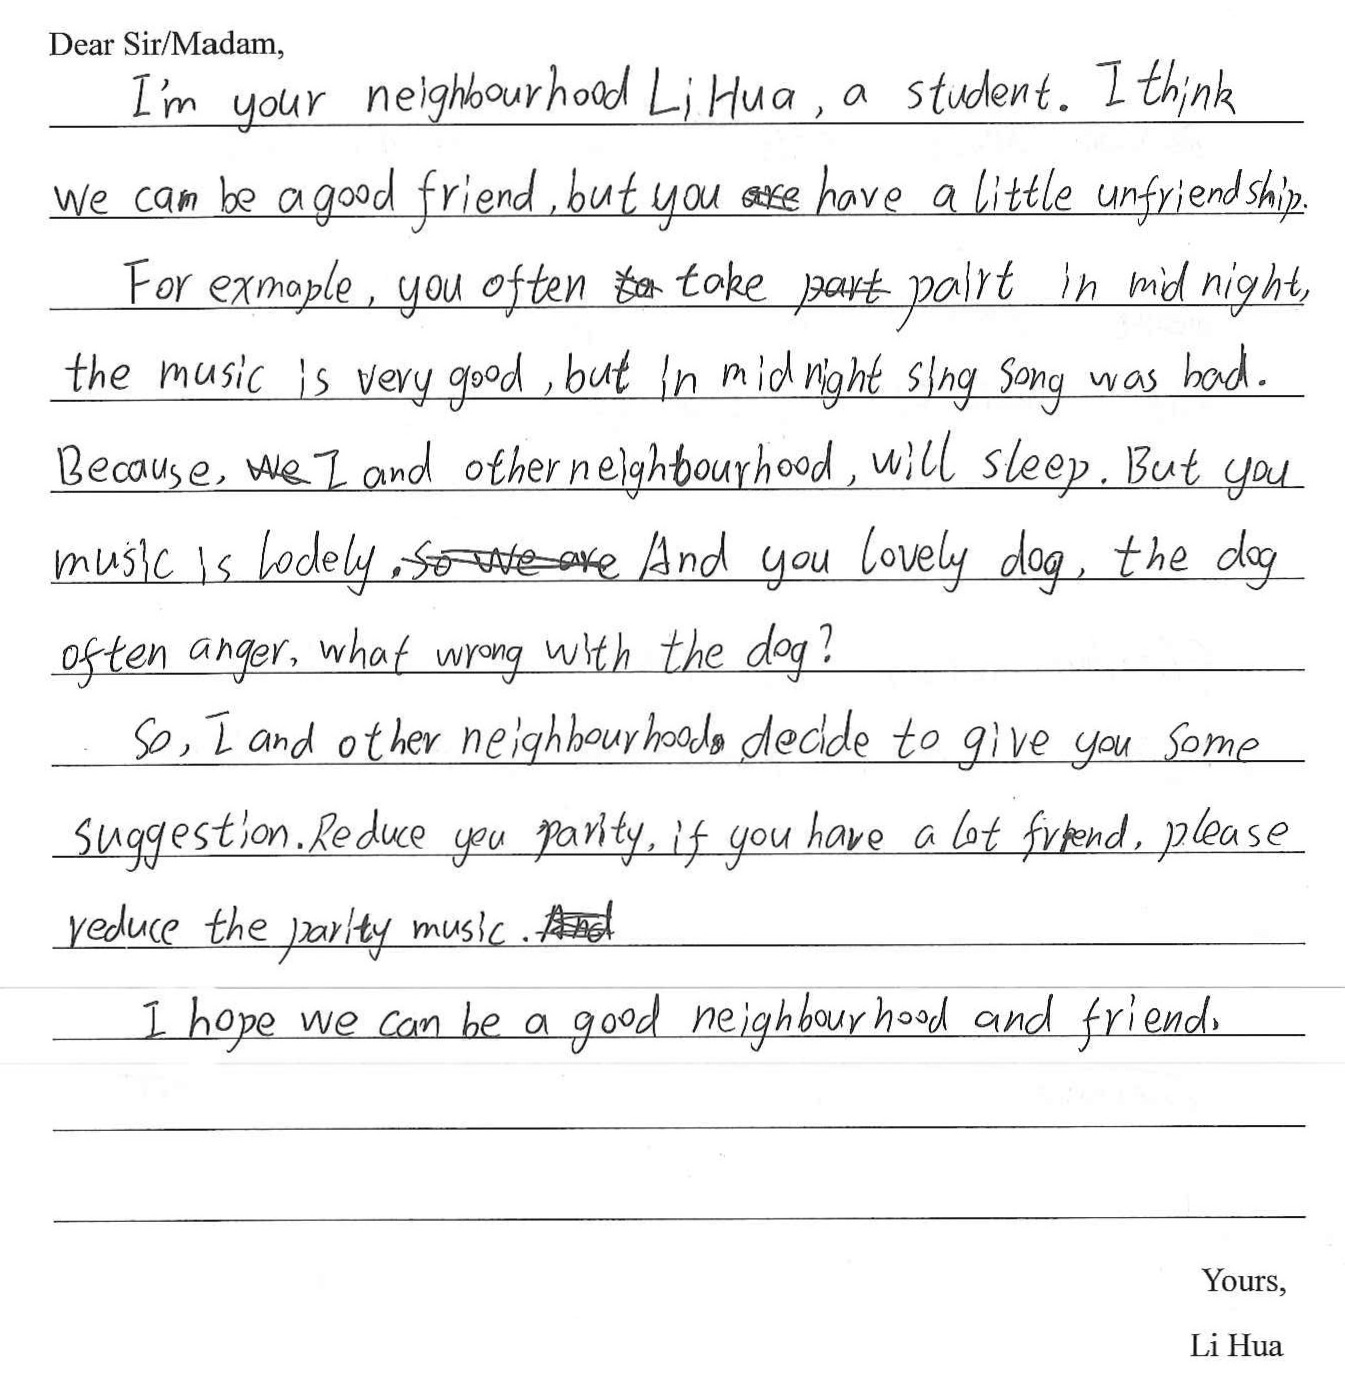 Dear Sir/Madam,
I'm your neighbourhood Li Hua, a student. I think
we can be a good friend, but you have a little unfriendship.
For exmaple, you often take pairt in mid night,
the music is very good, but in mid night sing song was bad.
Because, I and other neighbourhood, will sleep. But you
music is lodely. And you lovely dog, the dog
often anger, what wrong with the dog?
So, I and other neighbourhood decide to give you some
suggestion. Reduce you parity, if you have a lot friend, please
reduce the parity music.
I hope we can be a good neighbourhood and friend.
Yours,
Li Hua